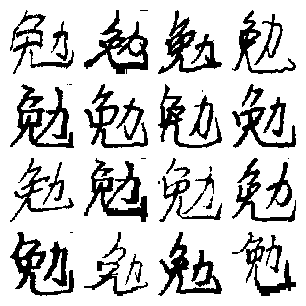 勉勉勉勉
勉勉勉勉
勉勉勉勉
勉勉勉勉